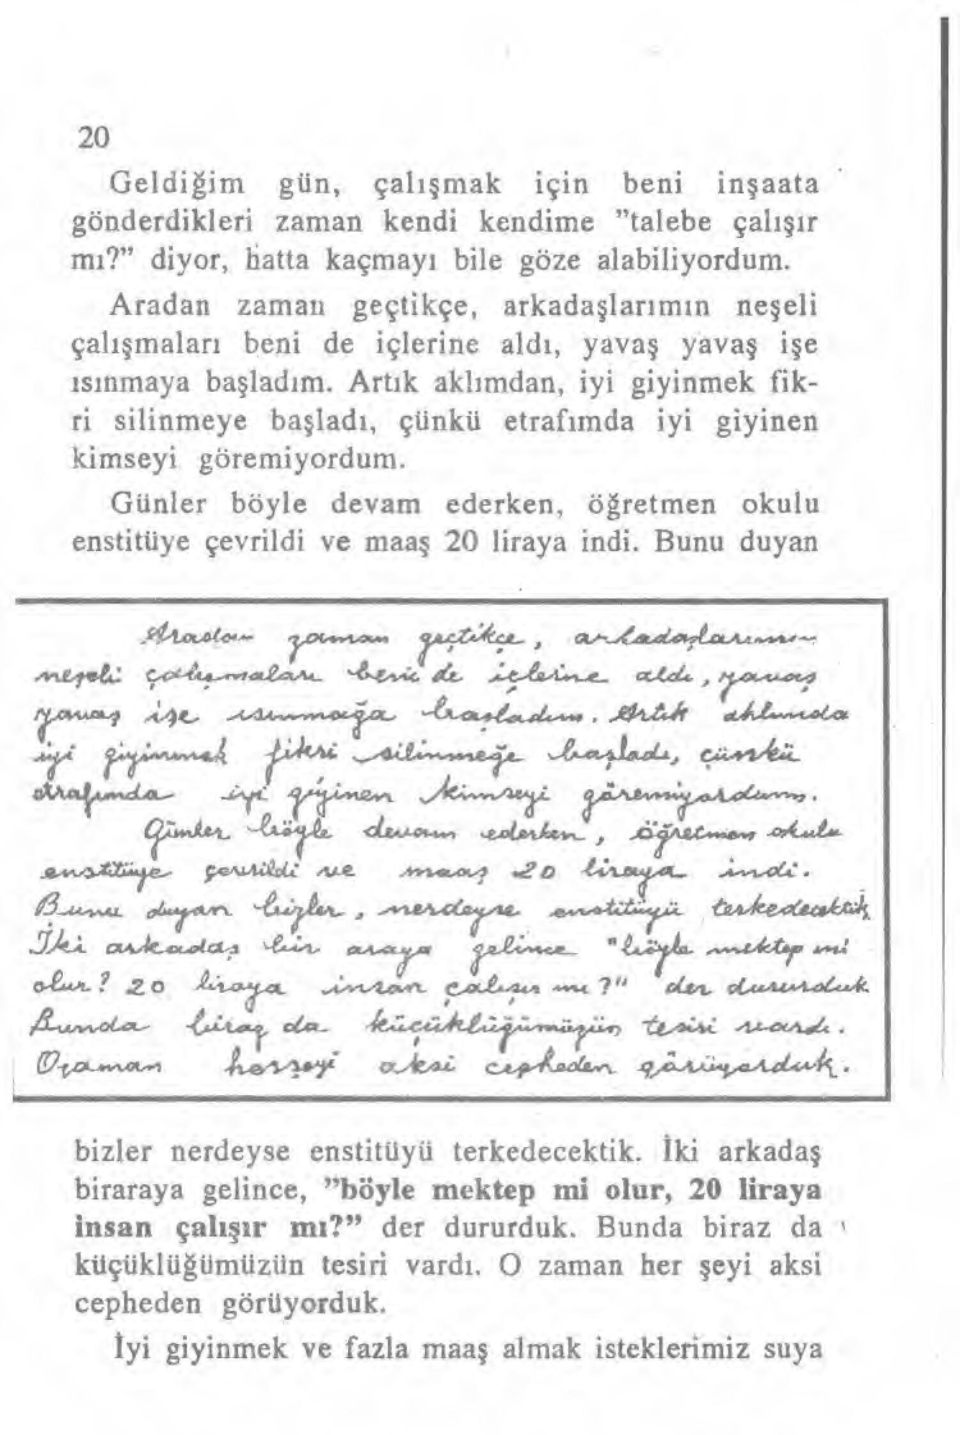 20
Geldiğim gün, çalışmak için beni inşaata
gönderdikleri zaman kendi kendime ”talebe çalışır
mı?” diyor, hatta kaçmayı bile göze alabiliyordum.
Aradan zaman geçtikçe, arkadaşlarımın neşeli
çalışmaları beni de içlerine aldı, yavaş yavaş işe
ısınmaya başladım. Artık aklımdan, iyi giyinmek fik-
ri silinmeye başladı, çünkü etrafımda iyi giyinen
kimseyi göremiyordum.
Günler böyle devam ederken, öğretmen okulu
enstitüye çevrildi ve maaş 20 liraya indi. Bunu duyan
Aradan zaman geçtikçe, arkadaşlarımın
neşeli çalışmaları beni de içlerine aldı, yavaş
yavaş işe ısınmağa başladım. Artık aklımda
iyi giyinmek fikri silinmeğe başladı, çünkü
etrafımda iyi giyinen kimseyi göremiyordum.
Günler böyle devam ederken, öğretmen okulu
enstitüye çevrildi ve maaş 20 liraya indi.
Bunu duyan bizler, nerdeyse enstitüyü terkedecektik.
İki arkadaş bir araya gelince "böyle mektep mi
olur? 20 liraya insan çalışır mı?" der dururduk.
Bunda biraz da küçüklüğümüzün tesiri vardı.
Ozaman herşeyi aksi cepheden görüyorduk.
bizler nerdeyse enstitüyü terkedecektik. İki arkadaş
biraraya gelince, ”böyle mektep mi olur, 20 liraya
insan çalışır mı?” der dururduk. Bunda biraz da
küçüklüğümüzün tesiri vardı. O zaman her şeyi aksi
cepheden görüyorduk.
İyi giyinmek ve fazla maaş almak isteklerimiz suya